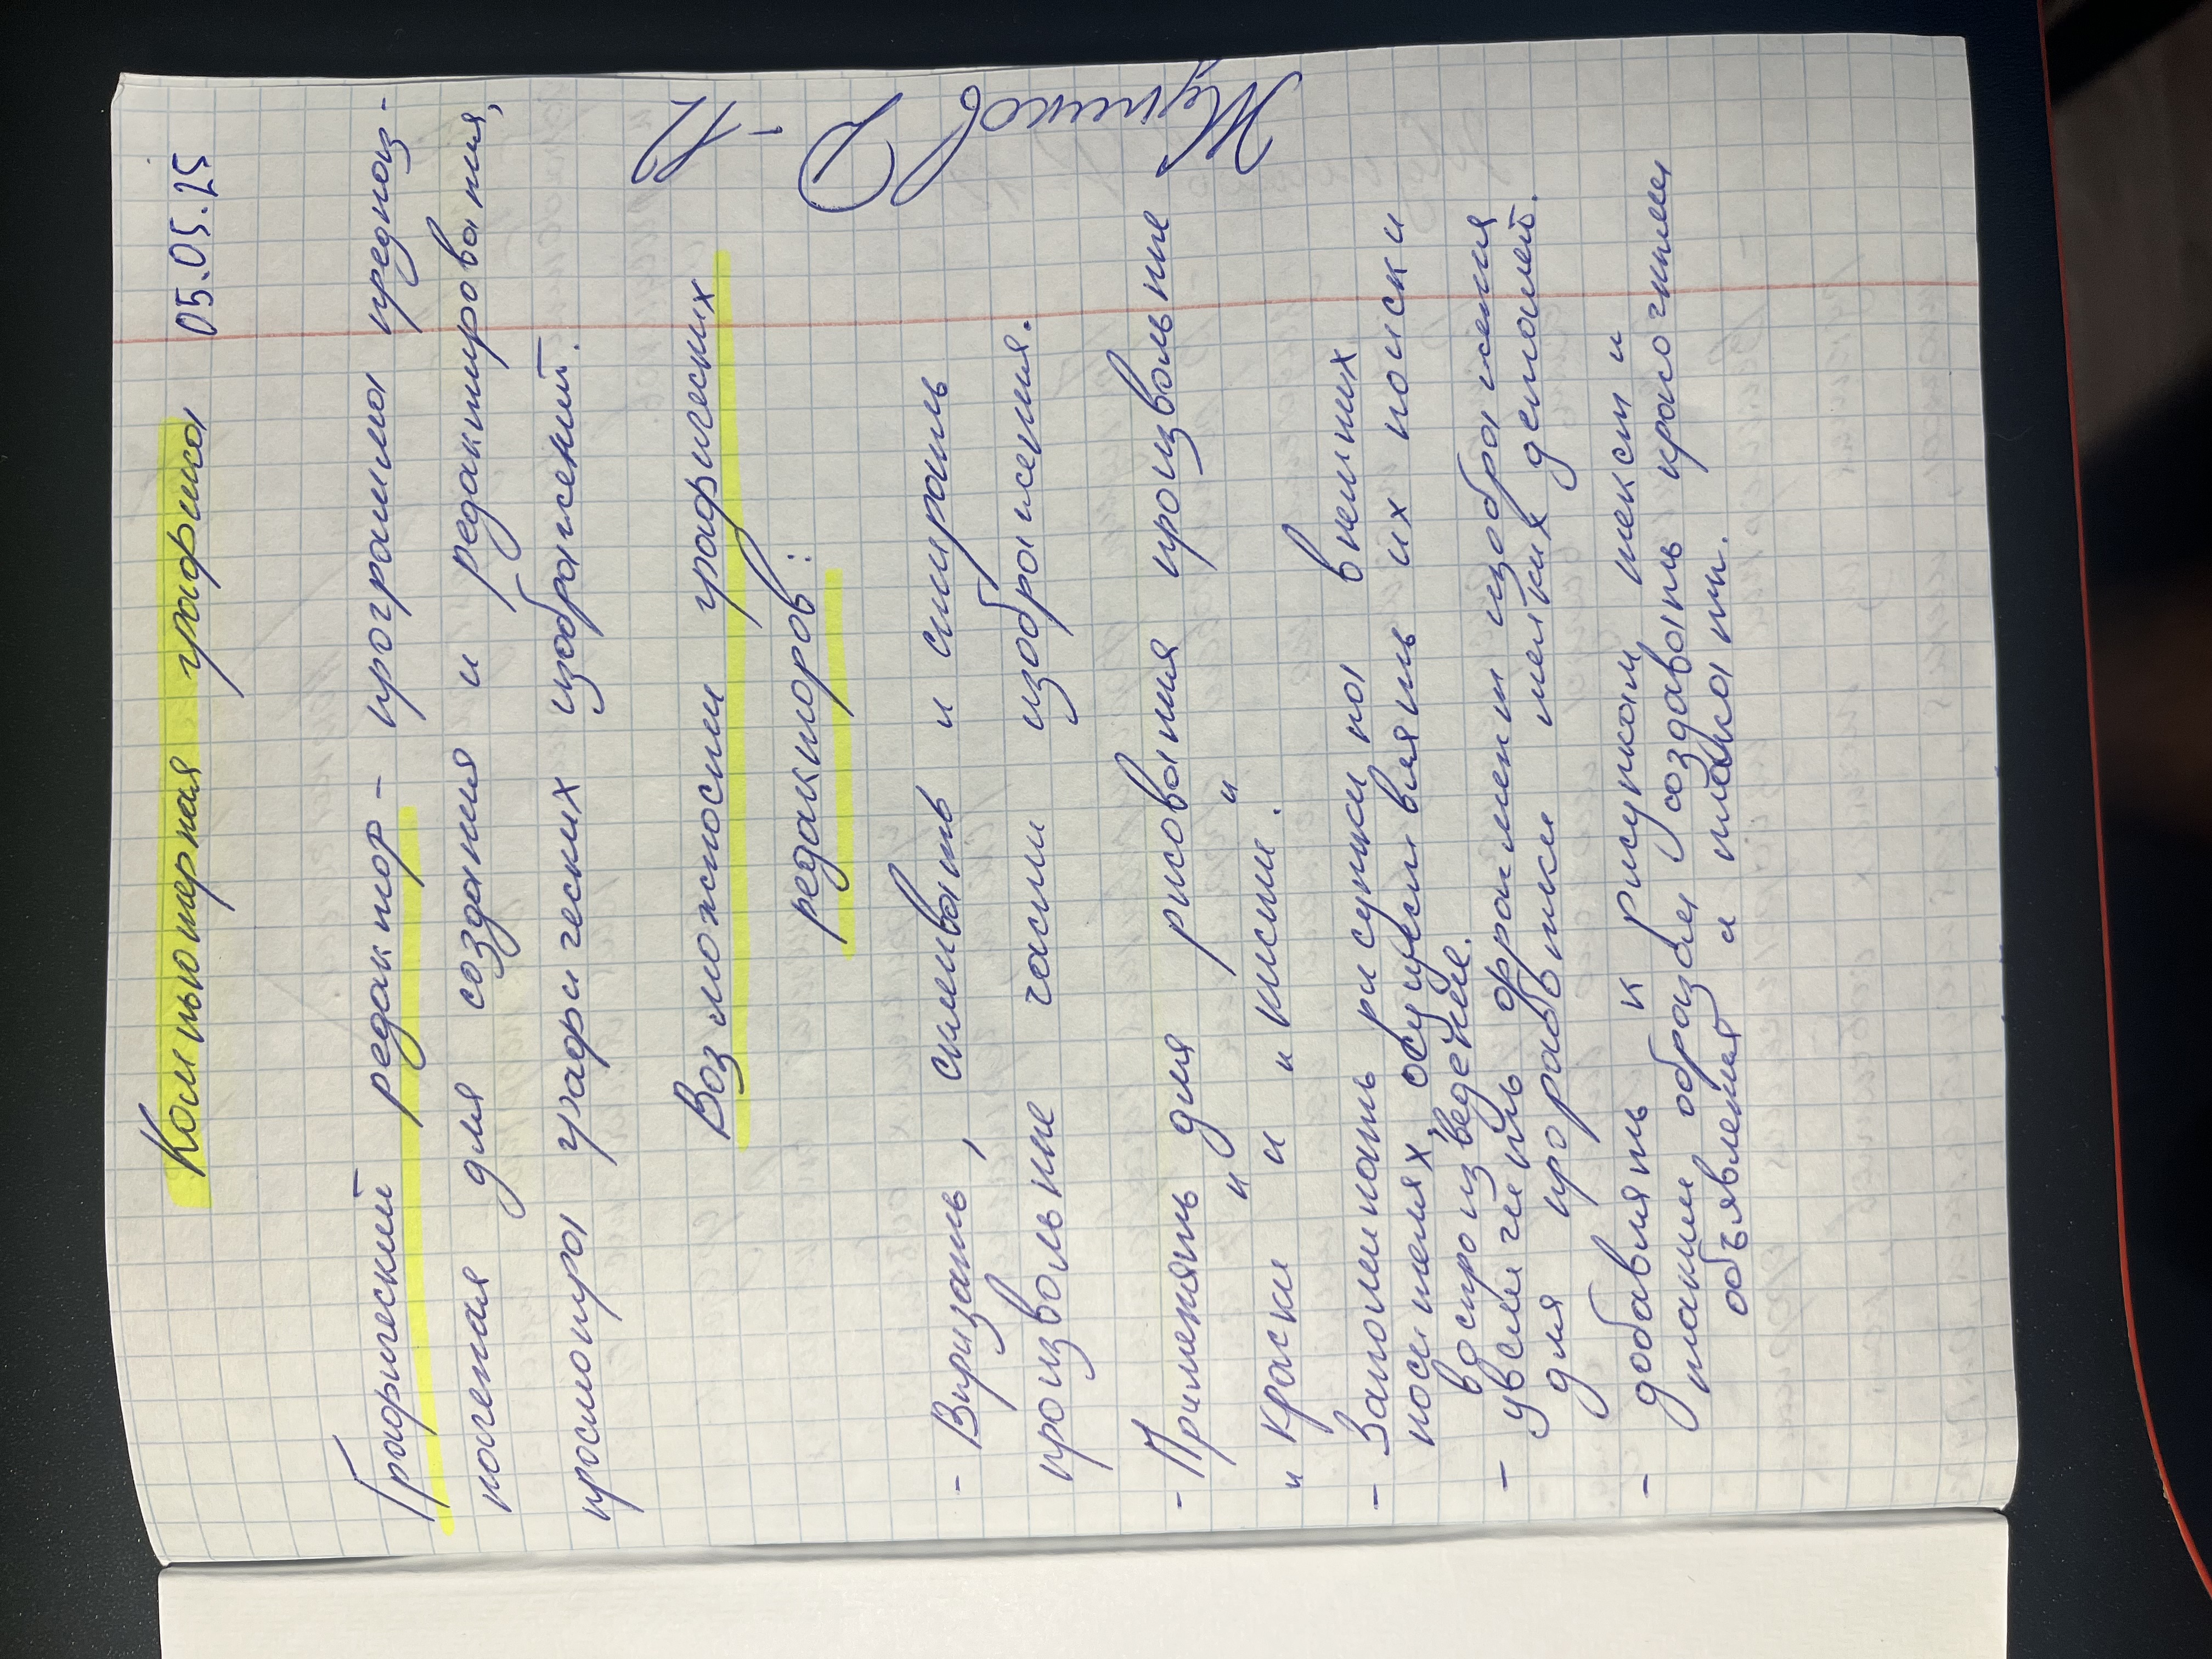 Компьютерная графика 05.05.25
Графический редактор - программа предназ-
наченая для создания и редактирования,
просмотра графических изображений.
Возможности графических
редакторов:
- Виризать, склеивать и стирать
произвольние части изображения.
- Применять для рисования произвольние
"краски" и "кисти".
- Запоминать рисунки на внешних
носителях, осуществлять их поиск и
воспроизведение.
- увеличить фрагмент изображения
для проработки мелких деталей.
- добавлять к рисункам текст и
таким образом создавать красочнием
объявления и плакати.